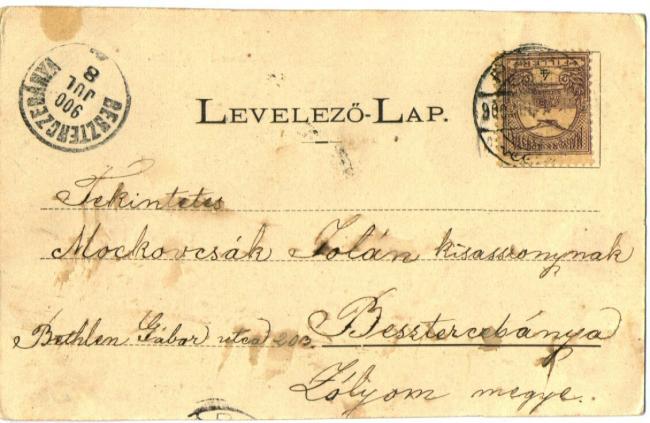 BESZTERCZEBÁNYA
900
JUL
8
4
LEVELEZŐ-LAP.
Tekintetes
Mockovcsák Jolán kisasszonynak
Bethlen Gábor utca 203.
Besztercebánya
Zólyom megye.